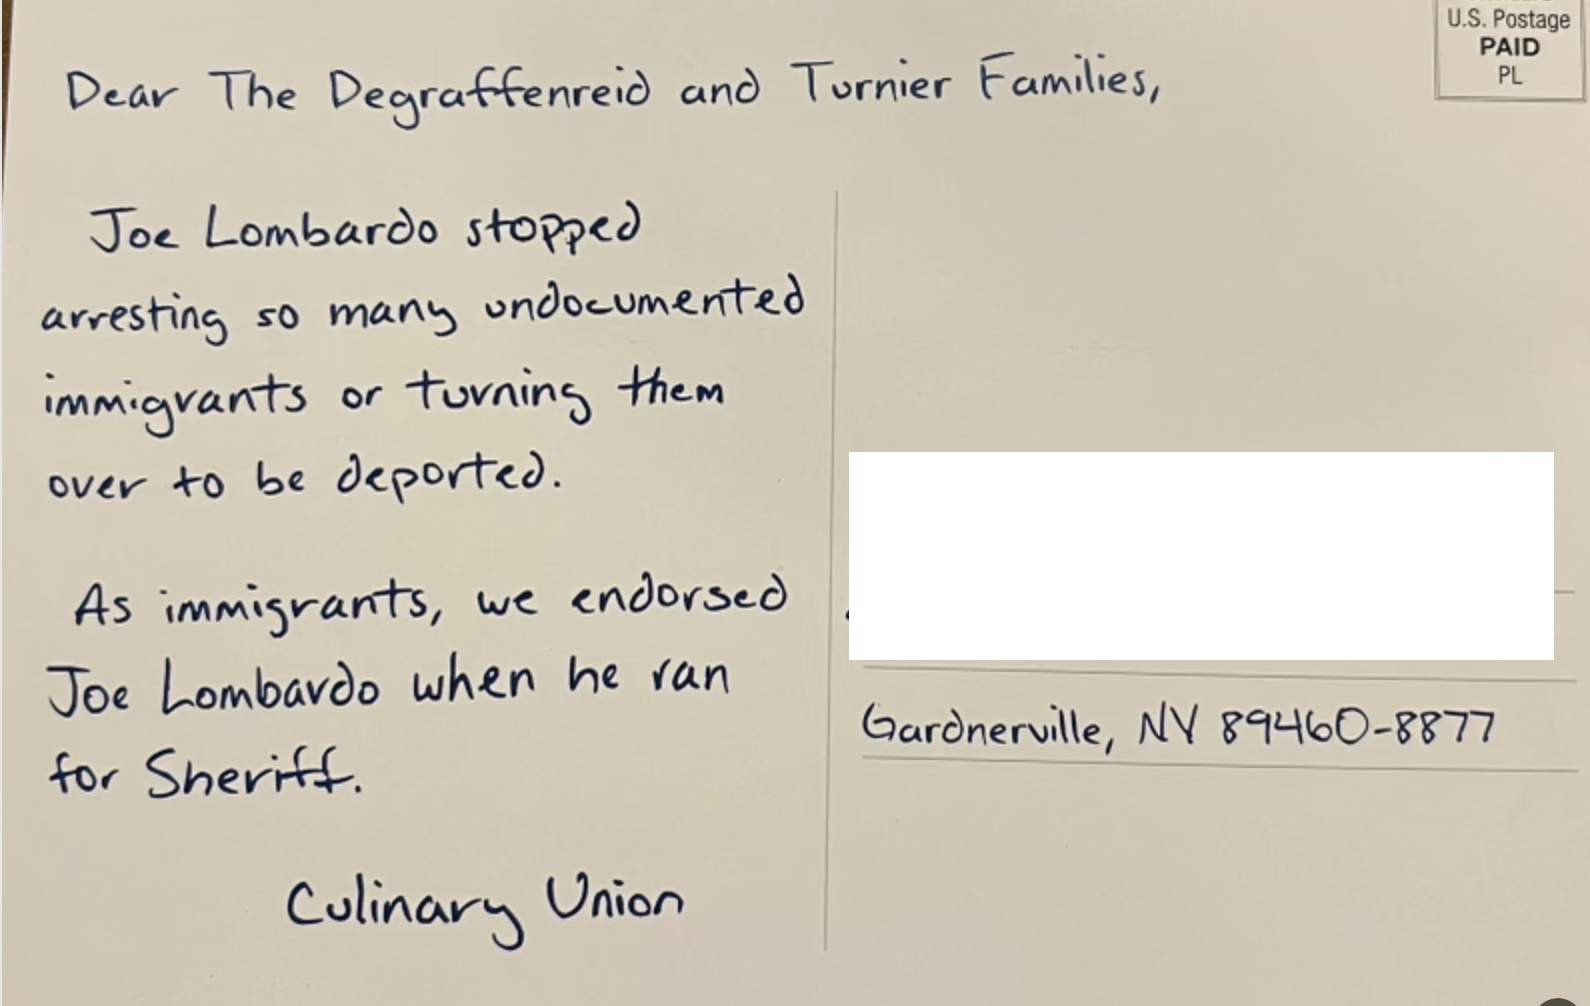 U.S. Postage
PAID
PL
Dear The Degraffenreid and Turnier Families,
Joe Lombardo stopped
arresting so many undocumented
immigrants or turning them
over to be deported.
As immigrants, we endorsed
Joe Lombardo when he ran
for Sheriff.
Culinary Union
Gardnerville, NV 89460-8877